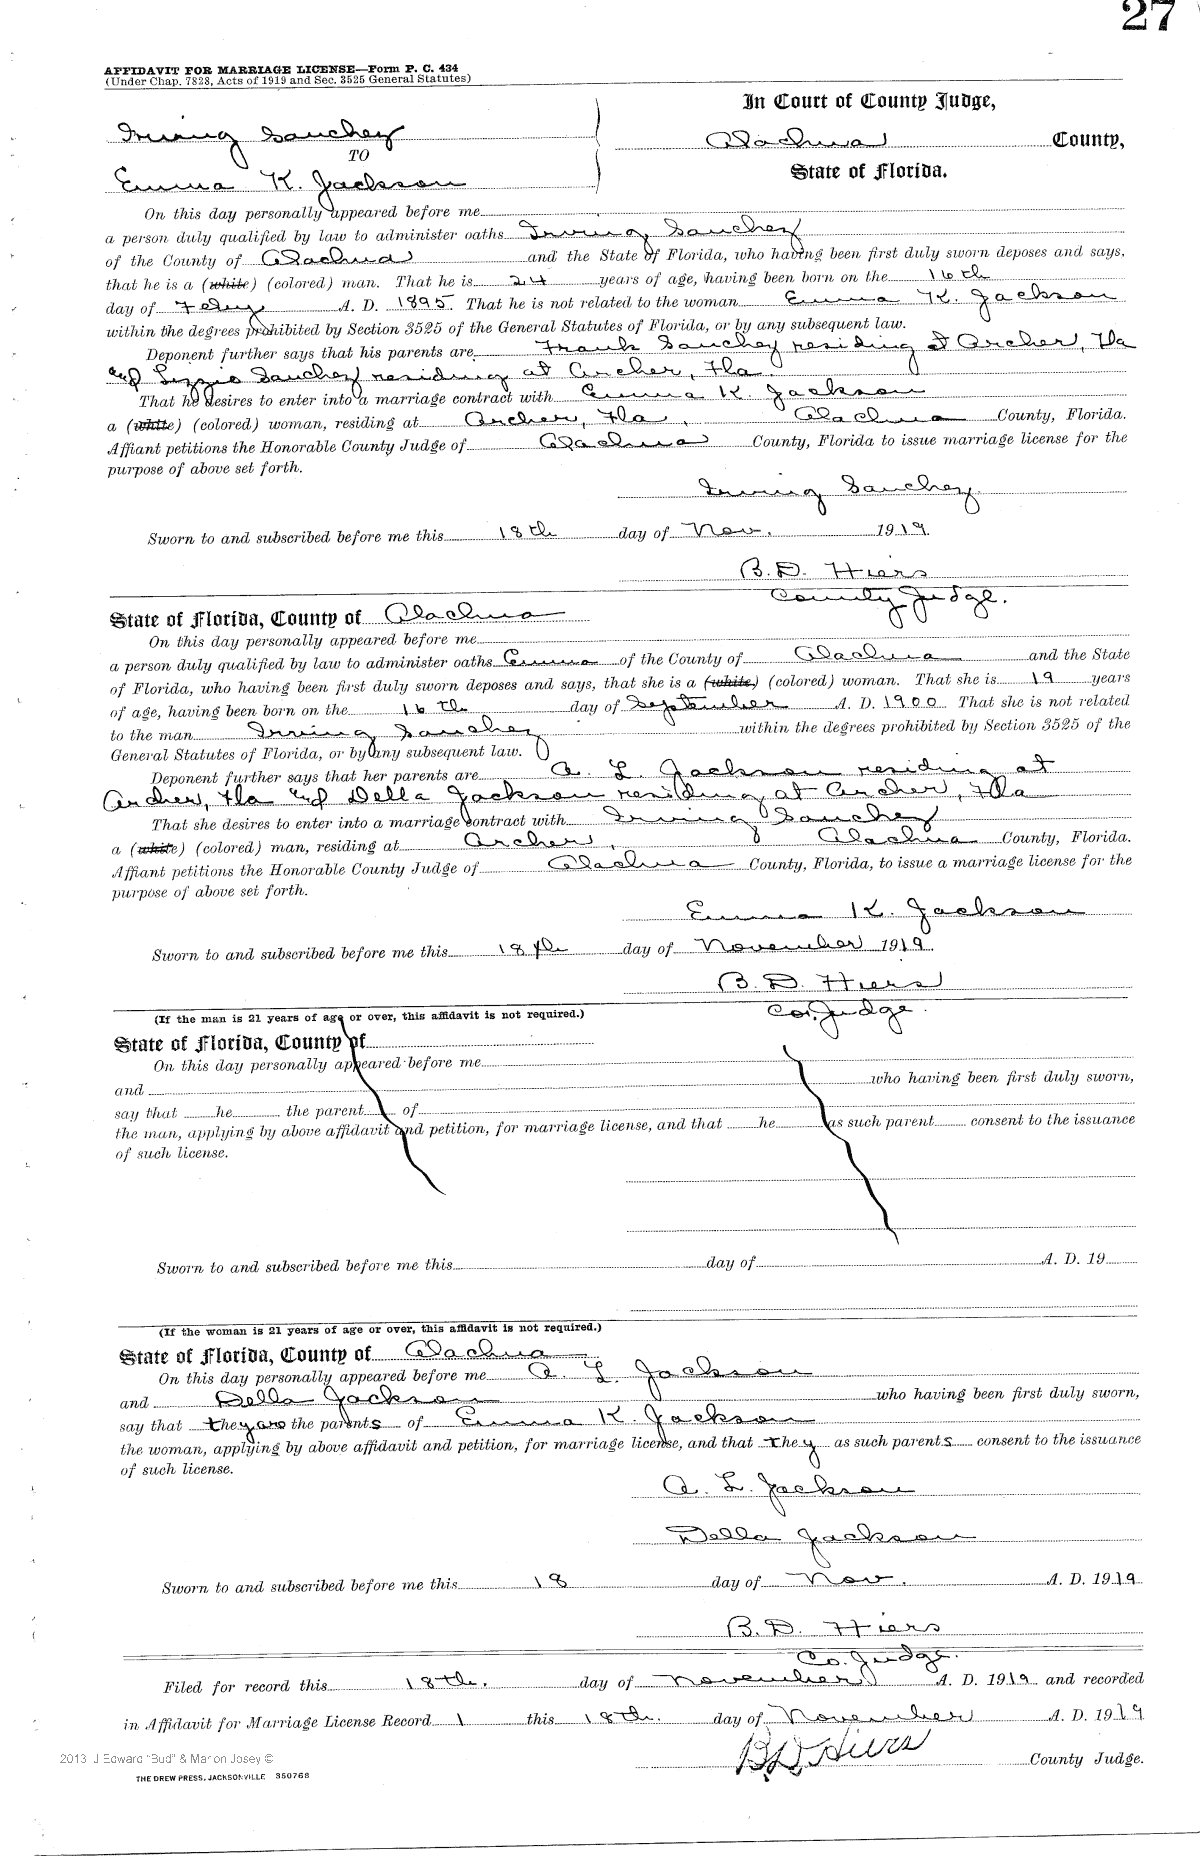 27
AFFIDAVIT FOR MARRIAGE LICENSE—Form P. C. 434
(Under Chap. 7828, Acts of 1919 and Sec. 3525 General Statutes)
In Court of County Judge,
Irving Sanchez
Alachua County,
TO
State of Florida.
Emma K. Jackson
On this day personally appeared before me
a person duly qualified by law to administer oaths Irving Sanchez
of the County of Alachua and the State of Florida, who having been first duly sworn deposes and says,
that he is a (white) (colored) man. That he is 24 years of age, having been born on the 16th
day of Feby A. D. 1895. That he is not related to the woman Emma K. Jackson
within the degrees prohibited by Section 3525 of the General Statutes of Florida, or by any subsequent law.
Deponent further says that his parents are Frank Sanchez residing at Archer, Fla
and Lizzie Sanchez residing at Archer, Fla.
That he desires to enter into a marriage contract with Emma K. Jackson
a (white) (colored) woman, residing at Archer, Fla, Alachua County, Florida.
Affiant petitions the Honorable County Judge of Alachua County, Florida to issue marriage license for the
purpose of above set forth.
Irving Sanchez
Sworn to and subscribed before me this 18th day of Nov. 1919.
B. D. Hiers
County Judge.
State of Florida, County of Alachua
On this day personally appeared before me
a person duly qualified by law to administer oaths Emma of the County of Alachua and the State
of Florida, who having been first duly sworn deposes and says, that she is a (white,) (colored) woman. That she is 19 years
of age, having been born on the 16th day of September A. D. 1900 That she is not related
to the man Irving Sanchez within the degrees prohibited by Section 3525 of the
General Statutes of Florida, or by any subsequent law.
Deponent further says that her parents are A. L. Jackson residing at
Archer, Fla and Della Jackson residing at Archer, Fla
That she desires to enter into a marriage contract with Irving Sanchez
a (white) (colored) man, residing at Archer, Alachua County, Florida.
Affiant petitions the Honorable County Judge of Alachua County, Florida, to issue a marriage license for the
purpose of above set forth.
Emma K. Jackson
Sworn to and subscribed before me this 18th day of November 1919.
B. D. Hiers
Co. Judge.
(If the man is 21 years of age or over, this affidavit is not required.)
State of Florida, County of
On this day personally appeared before me
and who having been first duly sworn,
say that he the parent of
the man, applying by above affidavit and petition, for marriage license, and that he as such parent consent to the issuance
of such license.
Sworn to and subscribed before me this day of A. D. 19
(If the woman is 21 years of age or over, this affidavit is not required.)
State of Florida, County of Alachua
On this day personally appeared before me A. L. Jackson
and Della Jackson who having been first duly sworn,
say that they are the parents of Emma K. Jackson
the woman, applying by above affidavit and petition, for marriage license, and that they as such parents consent to the issuance
of such license.
A. L. Jackson
Della Jackson
Sworn to and subscribed before me this 18 day of Nov. A. D. 1919
B. D. Hiers
Co. Judge.
Filed for record this 18th. day of November A. D. 1919 and recorded
in Affidavit for Marriage License Record 1 this 18th. day of November A. D. 1919
B D Hiers County Judge.
2013 J Edward "Bud" & Marion Josey ©
THE DREW PRESS, JACKSONVILLE 350768